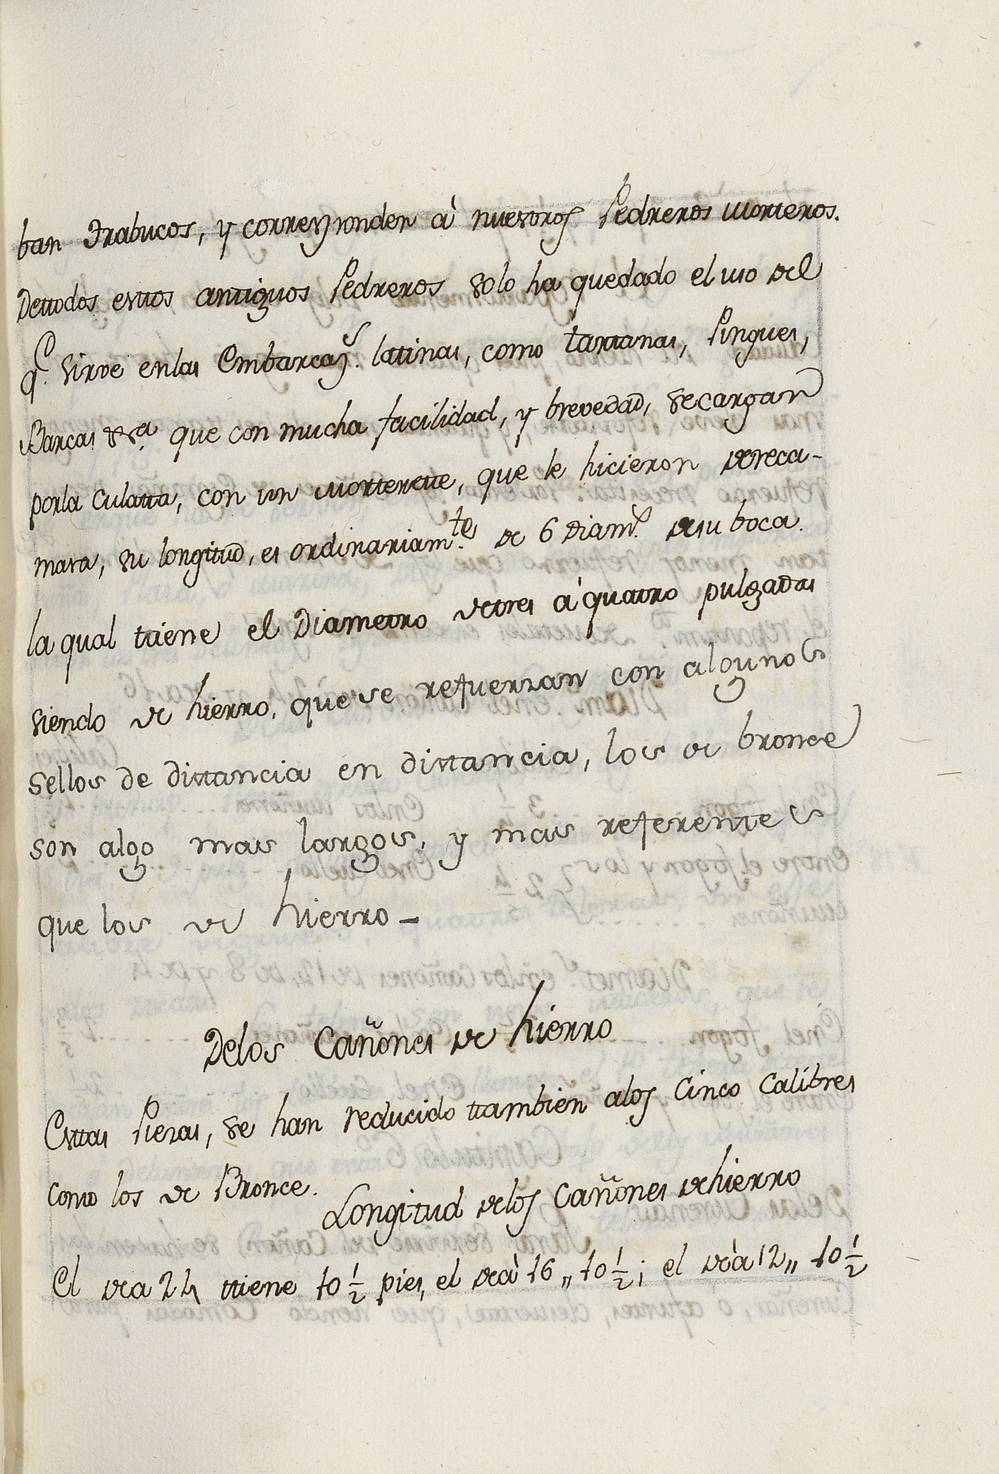 ban Trabucos, y corresponden à nuestros Pedreros morteros.
Dettodos esttos antiguos Pedreros solo ha quedado el uso del
q.e sirve enlas Embarcas.s latinas, como tartanas, Pingues,
Barcas &.a que con mucha facilidad, y brevedad, secargan
porla culatta, con un morterette, que le hicieron dereca-
mara, su longitud, es ordinariam.te de 6 Diam.s desu boca.
la qual ttiene el Diametro detres à quatro pulgadas
siendo de hierro, que se refuerzan con algunos
sellos de distancia en distancia, los de bronce
son algo mas largos, y mas referentes
que los de hierro –
Delos Cañones de hierro
Esttas Piezas, se han reducido ttambien alos Cinco Calibres
como los de Bronce.
Longitud delos Cañones dehierro
El dea 24 ttiene 10 1/2 pies, el deà 16 ,, 10 1/2; el deà 12 ,, 10 1/2